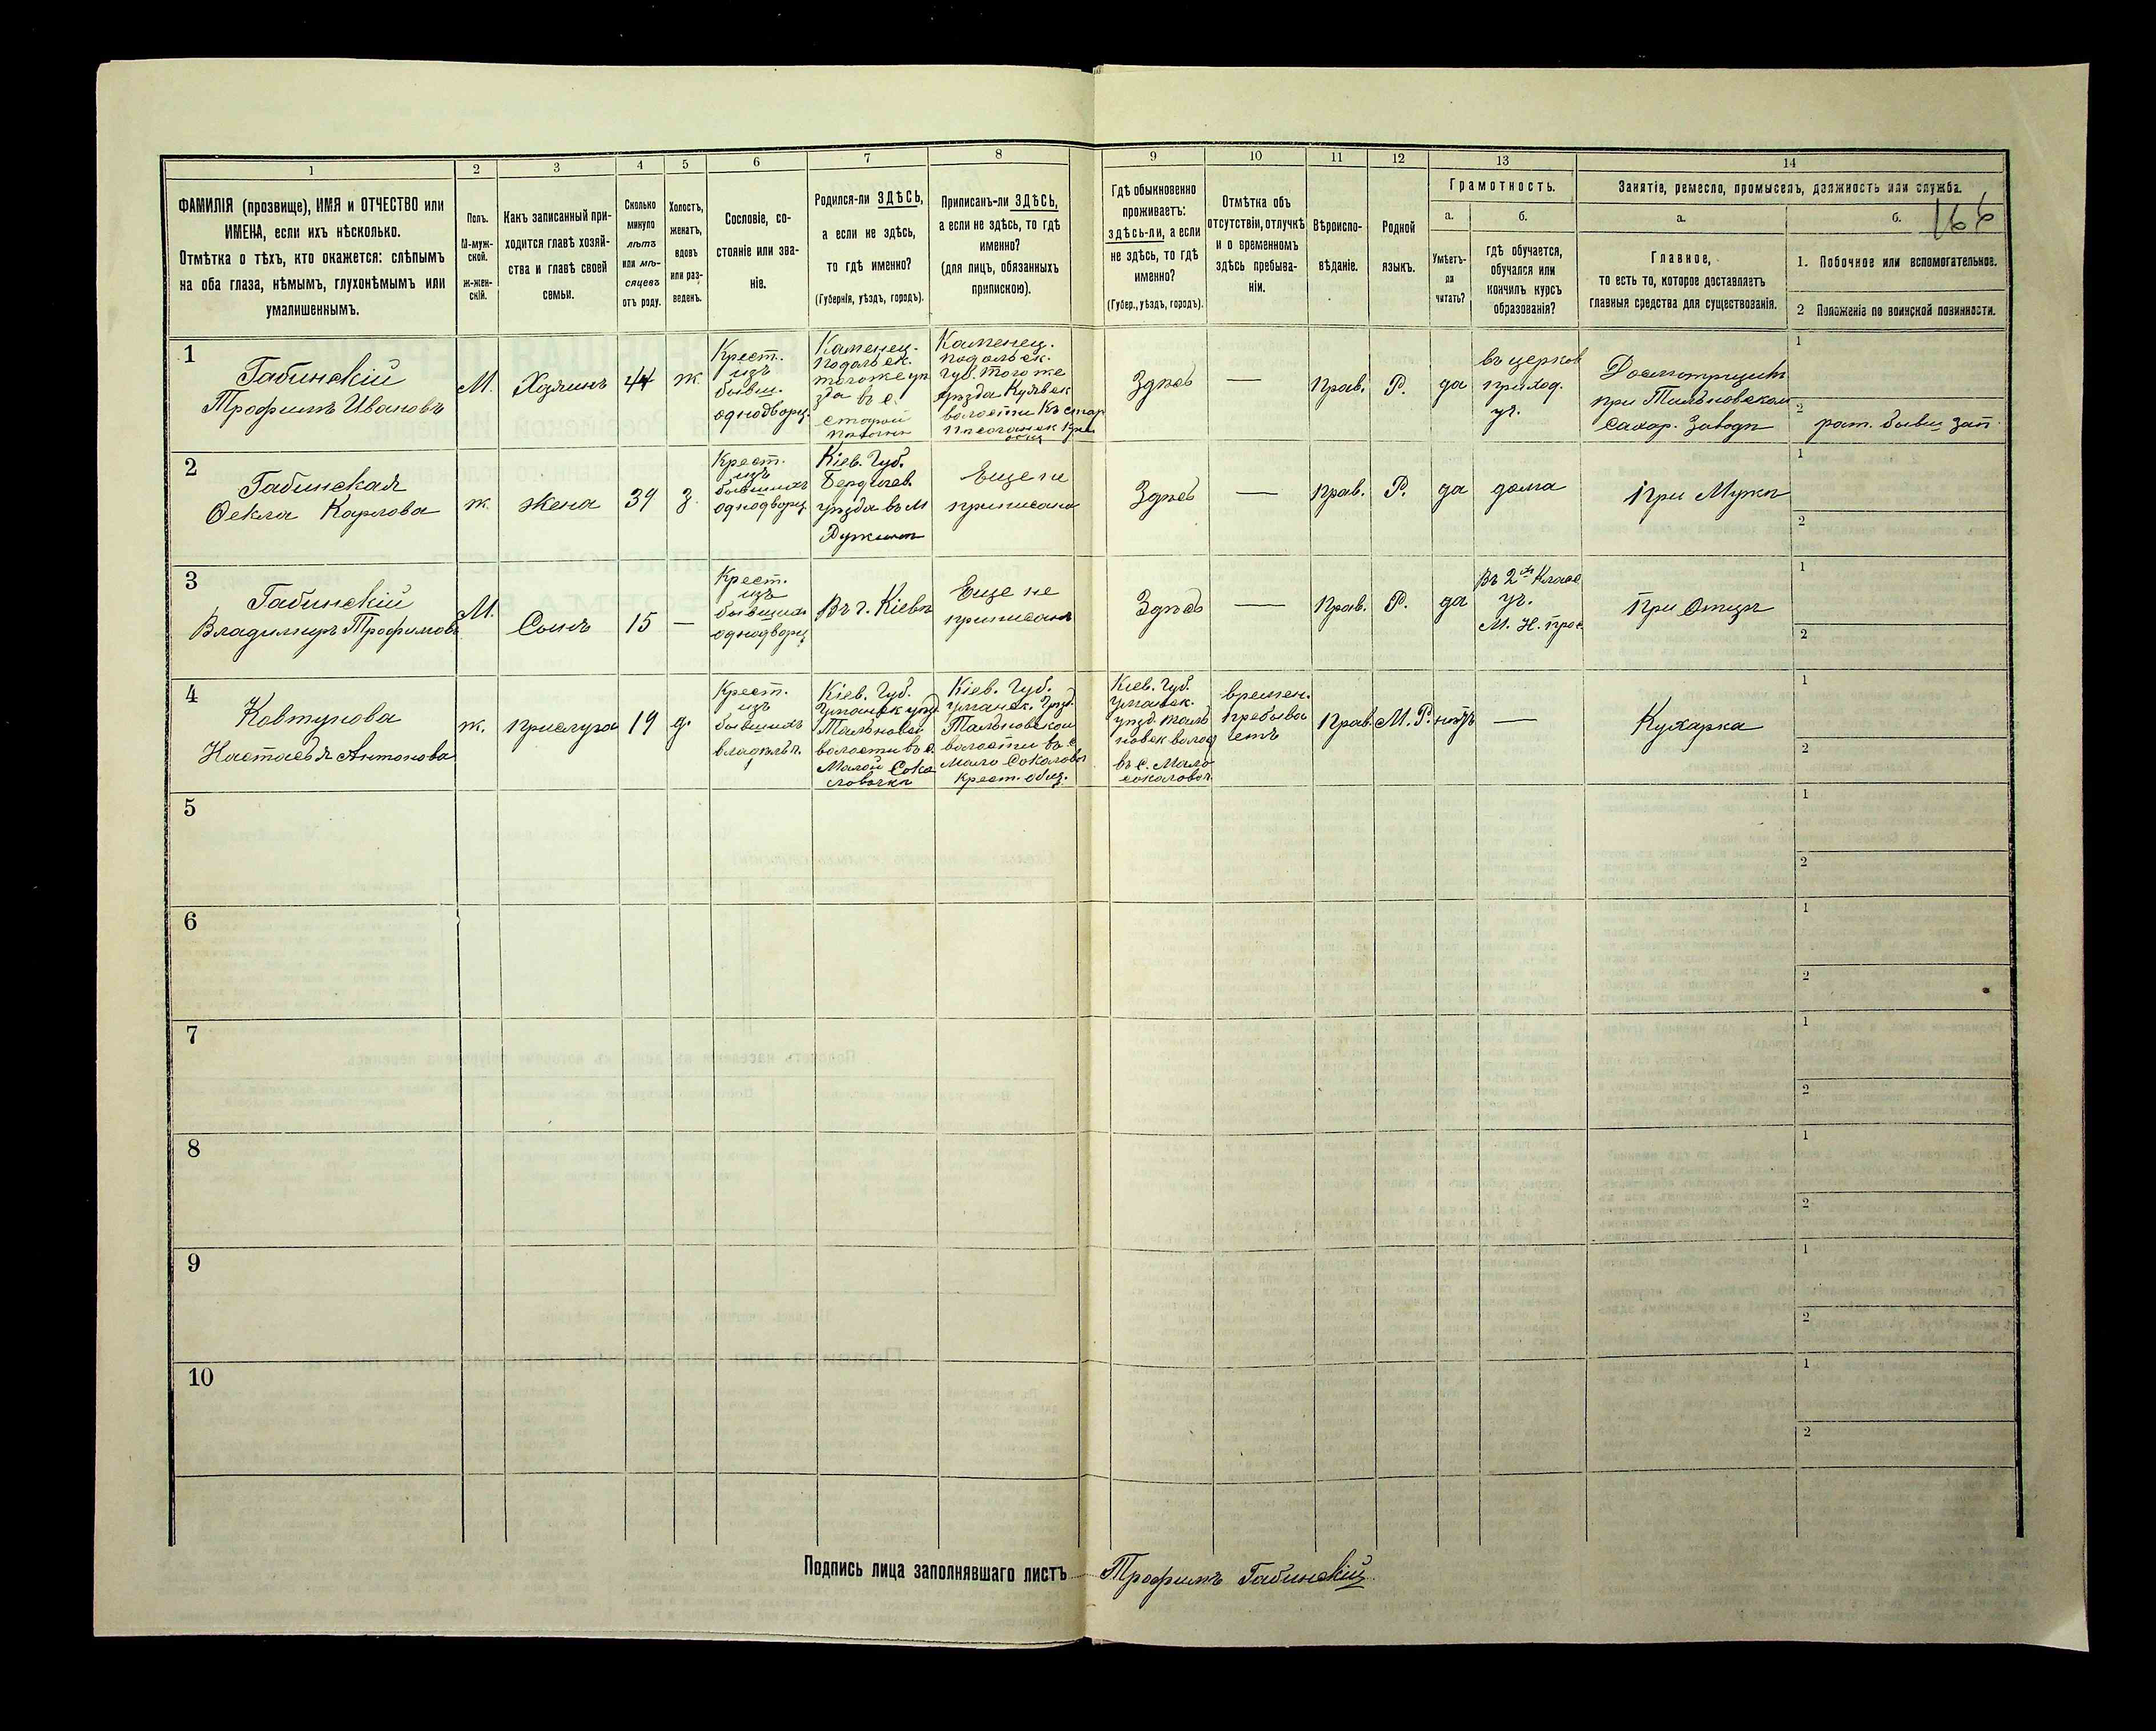 1 2 3 4 5 6 7 8 9 10 11 12 13 14
ФАМИЛІЯ (прозвище), ИМЯ и ОТЧЕСТВО или
ИМЕНА, если ихъ нѣсколько.
Отмѣтка о тѣхъ, кто окажется: слѣпымъ
на оба глаза, нѣмымъ, глухонѣмымъ или
умалишеннымъ.
Полъ.
М-муж-
ской.
ж-жен-
скій.
Какъ записанный при-
ходится главѣ хозяй-
ства и главѣ своей
семьи.
Сколько
минуло
лѣтъ
или мѣ-
сяцевъ
отъ роду.
Холостъ,
женатъ,
вдовъ
или раз-
веденъ.
Сословіе, со-
стояніе или зва-
ніе.
Родился-ли ЗДѢСЬ,
а если не здѣсь,
то гдѣ именно?
(Губернія, уѣздъ, городъ).
Приписанъ-ли ЗДѢСЬ,
а если не здѣсь, то гдѣ
именно?
(для лицъ, обязанныхъ
припискою).
Гдѣ обыкновенно
проживаетъ:
здѣсь-ли, а если
не здѣсь, то гдѣ
именно?
(Губер., уѣздъ, городъ).
Отмѣтка объ
отсутствіи, отлучкѣ
и о временномъ
здѣсь пребыва-
ніи.
Вѣроиспо-
вѣданіе.
Родной
языкъ.
Грамотность.
а.
Умѣетъ-
ли
читать?
б.
гдѣ обучается,
обучался или
кончилъ курсъ
образованія?
Занятіе, ремесло, промыселъ, должность или служба.
а.
Главное,
то есть то, которое доставляетъ
главныя средства для существованія.
б.
166
1. Побочное или вспомогательное.
2 Положеніе по воинской повинности.
1
Габинскій
Трофимъ Ивановъ
М.
Хазяинъ
44
ж.
Крест.
изъ
бывш.
однодворц.
Каменец.
подольск.
тогоже уѣ
зда въ с.
старой
Каменец.
подольск.
губ. того же
уѣзда
волости
Здѣсь
—
Прав.
Р.
да
въ церков
приход.
уч.
при Тальновском
Сахар. Заводѣ
1
2
рат. бывш зап.
2
Габинская
Ѳекла Карлова
ж.
Жена
39
з.
Крест.
изъ
бывшихъ
однодворц.
Кіев. Губ.
Бердичев.
уѣзда въ м
Еще не
приписана
Здѣсь
—
Прав.
Р.
да
дома
При Мужѣ
1
2
3
Габинскій
Владимиръ Трофимовъ
М.
Сынъ
15
—
Крест.
изъ
бывших
однодворц
Въ г. Кіевѣ
Еще не
приписанъ
Здѣсь
—
Прав.
Р.
да
Въ 2мъ Класс
уч.
М. Н. Прос
При Отцѣ
1
2
4
Ковтунова
Настасья Антонова
ж.
Прислуга
19
д.
Крест.
изъ
бывшихъ
владѣльч.
Кіев. Губ.
Уманск уѣзд
Тальновой
волости въ с.
Малой Соко
ловочкѣ
Кіев. Губ.
Уманск. Уѣзд.
Тальновской
волости въ с
Мало Соколовоч
крест. общ.
Кіев. Губ.
Уманск.
уѣзд. таль
новск волос
въ с. Мало
соколовоч.
времен.
пребыва
етъ
Прав.
М. Р.
нѣтъ
—
Кухарка
1
2
5
1
2
6
1
2
7
1
2
8
1
2
9
1
2
10
1
2
Подпись лица заполнявшаго листъ Трофимъ Габинскій